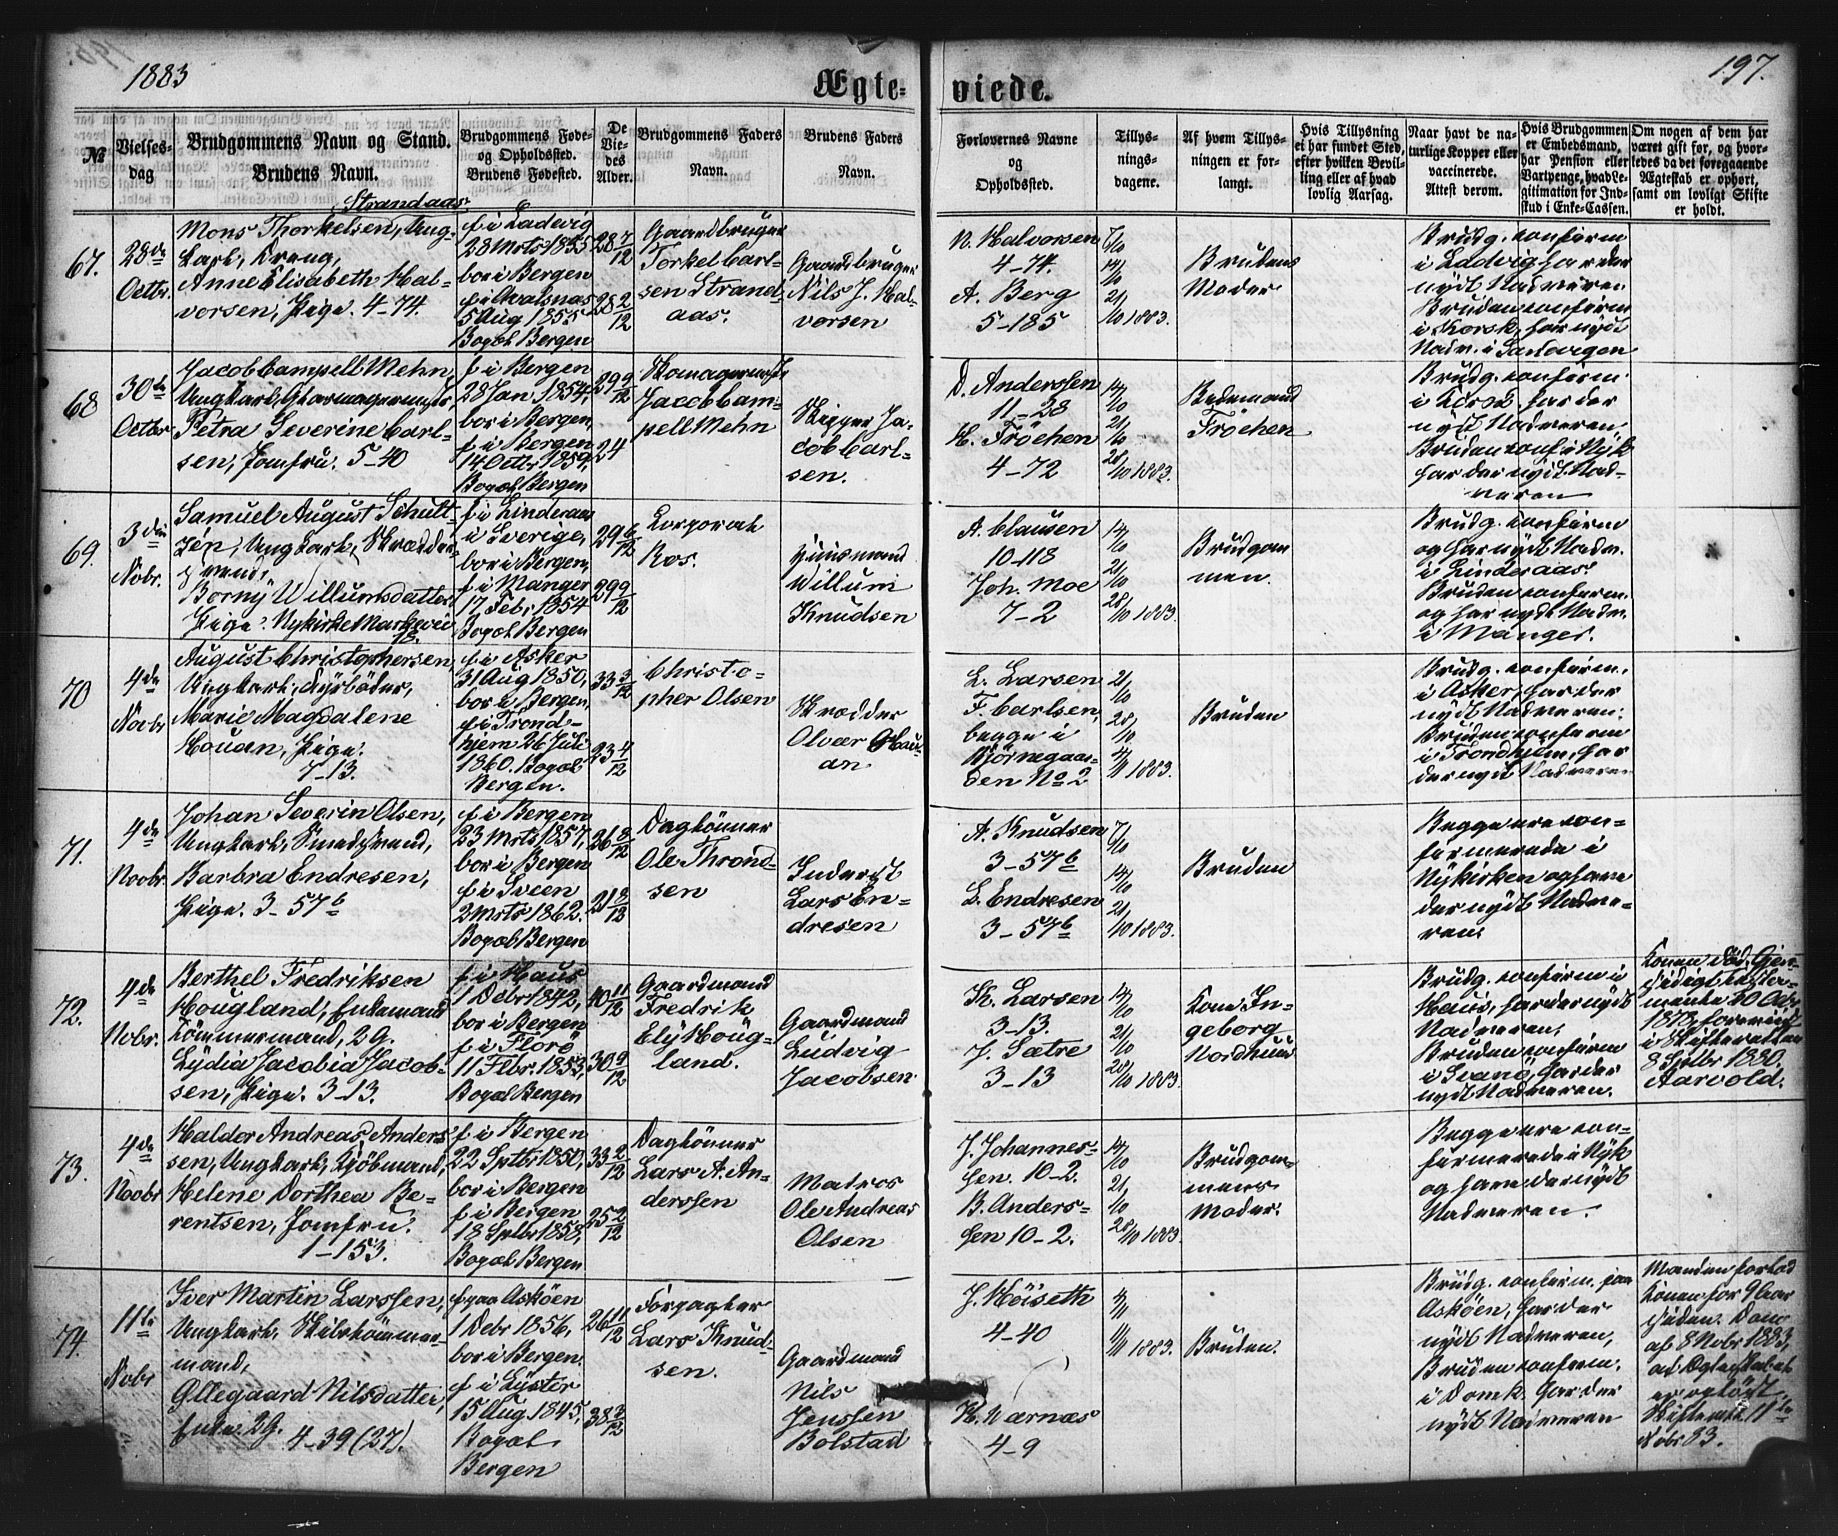 1883
Ægte-
viede.
197.
№
Vielses-
dag
Brudgommens Navn og Stand.
Brudens Navn.
Brudgommens Føde-
og Opholdssted.
Brudens Fødested.
De
Vie-
des
Alder.
Brudgommens Faders
Navn.
Brudens Faders
Navn.
Forlovernes Navne
og
Opholdssted.
Tillys-
nings-
dagene.
Af hvem Tillys-
ningen er for-
langt.
Hvis Tillysning
ei har fundet Sted,
efter hvilken Bevil-
ling eller af hvad
lovlig Aarsag.
Naar havt de na-
turlige Kopper eller
vaccinerede.
Attest derom.
Hvis Brudgommen
er Embedsmand,
har Pension eller
Vartpenge, hvad Le-
gitimation for Ind-
skud i Enke-Cassen.
Om nogen af dem har
været gift før, og hvor-
ledes da det foregaaende
Ægteskab er ophørt,
samt om lovligt Skifte
er holdt.
67.
28de
Octbr.
Strandaas
Mons Thorkelsen, Ung-
karl, Dreng,
Anne Elisabeth Hal-
vorsen, Pige. 4-74.
f i Ladvig
28 Mrts 1855
bor i Bergen
f i Avalsnas
5 Aug 1855
Bopæl Bergen
28 7/12
28 2/12
Gaardbruger
Torkel Carl-
sen Strand-
aas.
Gaardbruger
Nils J. Hal-
vorsen
N. Halvorsen
4-74.
A. Berg
5-185
7/10
14/10
21/10 1883.
Brudens
Moder
Brudg. confirm
i Ladvig har der
nydt Nadveren
Bruden confirm
i Korsk, har nydt
Nadv. i Sandvigen
68
30te
Octbr
Jacob Campell Mehn,
Ungkarl, Skomagermstr,
Petra Severine Carl-
sen, Jomfru. 5-40
f i Bergen
28 Jan 1854,
bor i Bergen,
f i Bergen
14 Octbr 1859,
Bopæl Bergen
29 9/12
24
Skomagermstr
Jacob Cam-
pell Mehn
Skipper Ja-
cob Carl-
sen.
D. Anderssen
11-28
H. Fröchen
4-72
14/10
21/10
28/10 1883.
Bedemand
Fröchen
Brudg. confirm.
i Korsk, har der
nydt Nadveren.
Bruden conf i Nyk
har der nydt Nad-
veren
69.
3die
Nobr.
Samuel August Schult-
zén, Ungkarl, Skrædder-
svend,
Borny Willumsdatter
Pige. Nykirke Margevei
f i Linderaas
i Sverige,
bor i Bergen,
f i Manger
17 Febr 1854
Bopæl Bergen
29 6/12
29 9/12
Corporal
Ros.
Huusmand
Willum
Knudsen
A. Clausen
10-118
Joh. Moe
7-2
14/10
21/10
28/10 1883.
Brudgom
men.
Brudg. confirm
og har nydt Nadv.
i Linderaas.
Bruden confirm.
og har nydt Nadv.
i Manger.
70
4de
Nobr
August Christophersen,
Ungkarl, Fyrböder,
Marie Magdalene
Houan, Pige.
7-13.
f i Asker
31 Aug 1850,
bor i Bergen,
f i Trond-
hjem 26 Juli
1860. Bopæl
Bergen.
33 3/12
23 4/12
Christo-
pher Olsen
Skrædder
Olver Hou-
an
L. Larsen
F. Carlsen,
begge i
Bjørnegaar-
den No 2
21/10
28/10
4/11 1883.
Bruden
Brudg. confirm.
i Asker, har der
nydt Nadveren.
Bruden confirm
i Trondhjem, har
der nydt Nadveren
71.
4de
Novbr
Johan Severin Olsen,
Ungkarl, Smedsvend,
Barbra Endresen,
Pige. 3-57b
f i Bergen
23 Mrts 1857,
bor i Bergen
f i Sveen
2 Mrts 1862.
Bopæl Bergen
26 8/12
21 8/12
Daglönner
Ole Thrond-
sen
Inderst
Lars En-
dresen
A. Knudsen
3-57b
L. Endresen
3-57b
7/10
14/10
21/10 1883.
Bruden
Begge ere con-
firmerede i
Nykirken og have
der nydt Nadve-
ren.
72.
4de
Nobr.
Berthel Fredriksen
Hougland, Enkemand
Tömmermand, 2g.
Lydia Jacobia Jacob-
sen, Pige. 3-13.
f i Haus
1 Debr 1842,
bor i Bergen
f i Florö
11 Febr. 1853,
Bopæl Bergen
40 11/12
30 9/12
Gaardmand
Fredrik
Ely Houg-
land.
Gaardmand
Ludvig
Jacobsen
K. Larsen
3-13.
J. Sætre
3-13
14/10
21/10
28/10 1883.
Kone In-
geborg
Nordhuus
Brudg. confirm i
Haus, har der nydt
Nadveren,
Bruden confirm
i Svanö, har der
nydt Nadveren.
Konen död. Gjen-
sidigt Testa-
mente
1873 foreviist
i Skifteretten
8 Septbr 1880.
Aarvold.
73.
4de
Novbr
Halder Andreas Anders
sen, Ungkarl, Kjöbmand,
Helene Dorthea Be-
rentsen, Jomfru.
1-153.
f i Bergen
22 Sptbr 1850,
bor i Bergen
f i Bergen
18 Sptbr 1858,
Bopæl Bergen
33 2/12
25 2/12
Daglönner
Lars A. An-
derssen
Matros
Ole Andreas
Olsen
J. Johannes-
sen. 10-2.
B. Anders-
sen 10-2.
14/10
21/10
28/10 1883
Brudgom-
mens
Moder.
Begge ere con-
firmerede i Nyk
og have der nydt
Nadveren.
74.
11te
Nobr
Iver Martin Larssen,
Ungkarl, Skibstömmer-
mand,
Øllegaard Nilsdatter,
Enke. 2g. 4-39 (27).
f paa Asköen
1 Debr 1856,
bor i Bergen.
f i Lyster
15 Aug 1845,
Bopæl
Bergen
26 11/12
38 3/12
Forpagter
Lars Knud-
sen.
Gaardmand
Nils
Jenssen
Bolstad
J. Höiseth
4-40
K. Nærnæs
4-9
4/11
11/11 1883.
Bruden.
Brudg. confirm. paa
Asköen, har der
nydt Nadveren,
Bruden confirm.
i Domk. har der
nydt Nadveren
Manden forlod
Konen for 9 Aar
siden. Dom
af 8 Nobr 1883,
at Ægteskabet
er oplöst.
Skifteatt. 11te
Nobr 83.